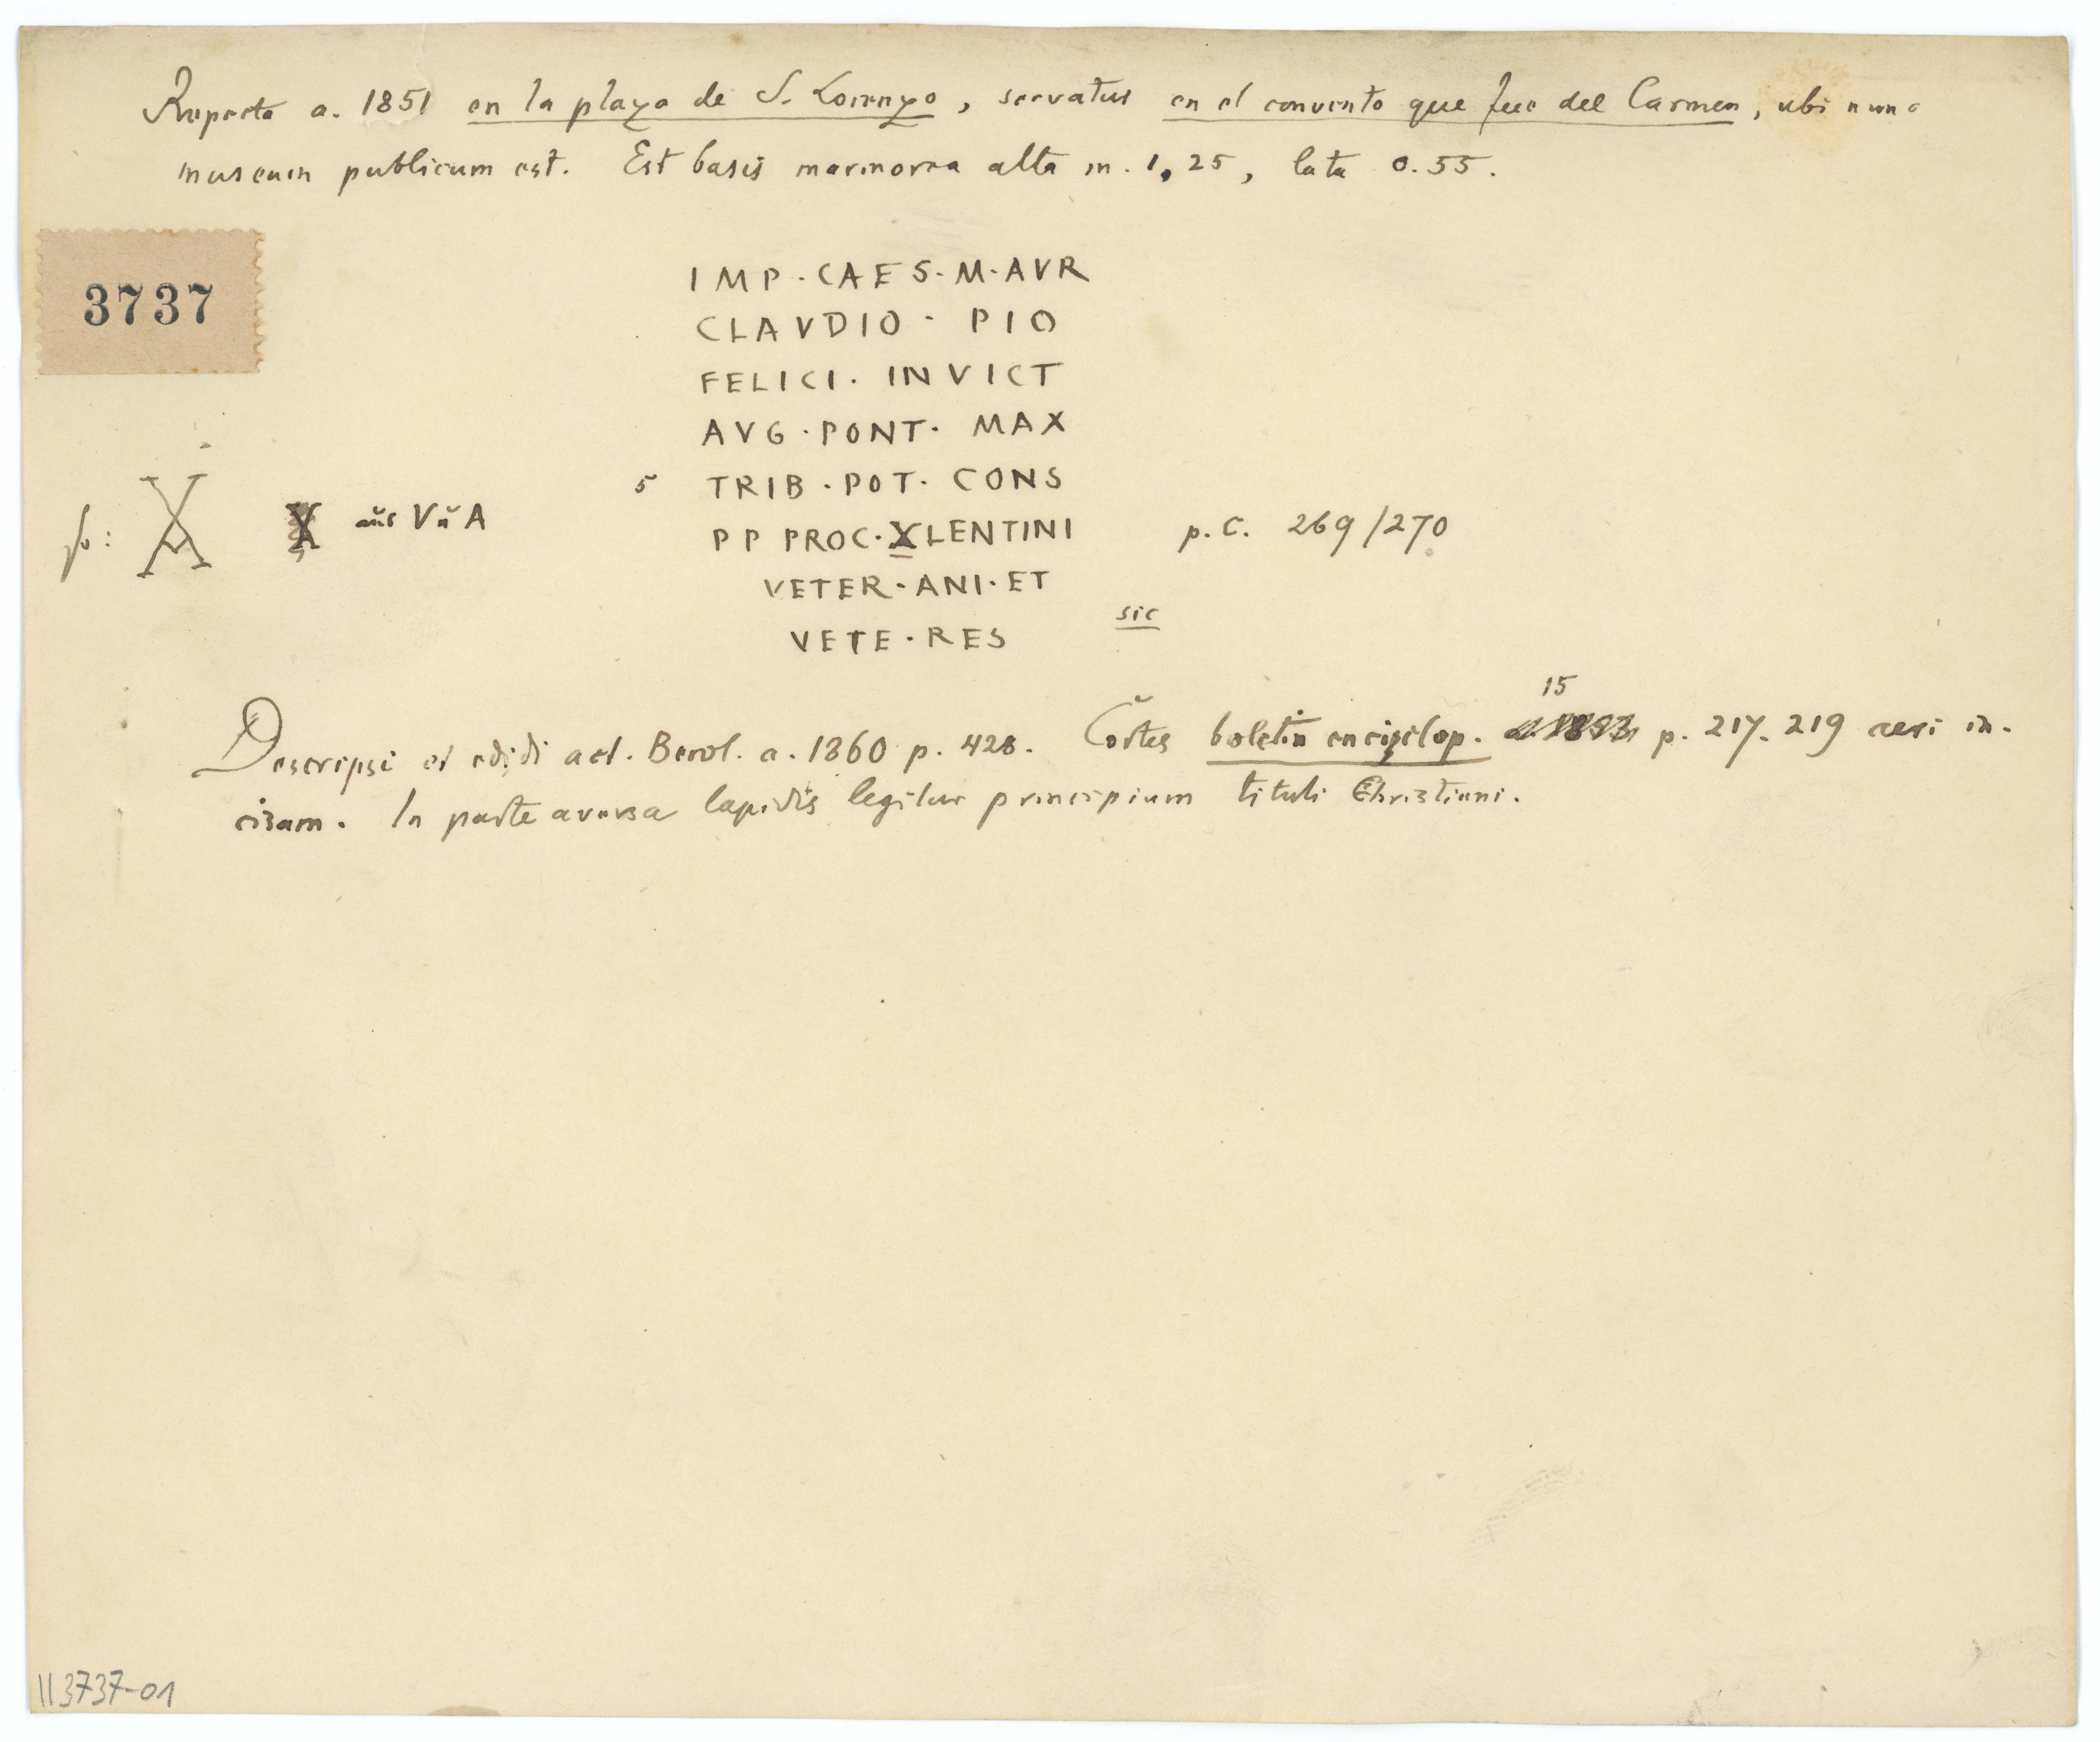 Reperta a. 1851 en la plaza de S. Lorenzo, servatur en el convento que fue del Carmen, ubi nunc
museum publicum est. Est basis marmorea alta m. 1,25, lata 0.55.
3737
IMP·CAES·M·AVR
CLAVDIO· PIO
FELICI· INVICT
AVG·PONT· MAX
5 TRIB·POT· CONS
so: X X aus V u A
PP PROC·XLENTINI p. C. 269/270
VETER·ANI·ET
VETE·RES sic
15
Descripsi et edidi act. Berol. a. 1860 p. 428. Cortes boletin enciclop. p. 217. 219 aeri in-
cisam. In parte aversa lapidis legitur principium tituli Christiani.
II 3737-01